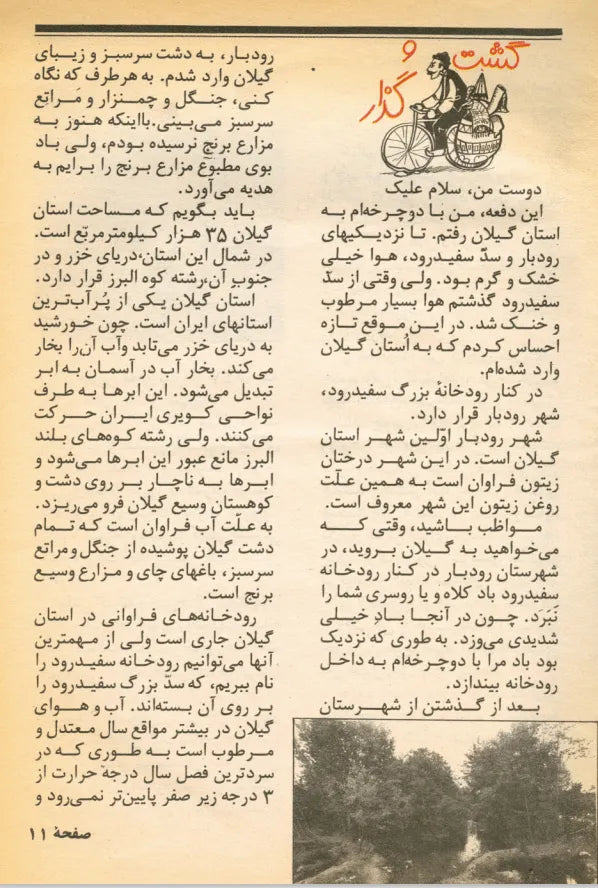 گشت و گذار
دوست من، سلام علیک
این دفعه، من با دوچرخه‌ام به
استان گیلان رفتم. تا نزدیکیهای
رودبار و سدّ سفیدرود، هوا خیلی
خشک و گرم بود. ولی وقتی از سدّ
سفیدرود گذشتم هوا بسیار مرطوب
و خنک شد. در این موقع تازه
احساس کردم که به اُستان گیلان
وارد شده‌ام.
در کنار رودخانهٔ بزرگ سفیدرود،
شهر رودبار قرار دارد.
شهر رودبار اوّلین شهر استان
گیلان است. در این شهر درختان
زیتون فراوان است به همین علّت
روغن زیتون این شهر معروف است.
مواظب باشید، وقتی که
می‌خواهید به گیلان بروید، در
شهرستان رودبار در کنار رودخانه
سفیدرود باد کلاه و یا روسری شما را
نَبَرَد. چون در آنجا بادِ خیلی
شدیدی می‌وزد. به طوری که نزدیک
بود باد مرا با دوچرخه‌ام به داخل
رودخانه بیندازد.
بعد از گذشتن از شهرستان
رودبار، به دشت سرسبز و زیبای
گیلان وارد شدم. به هر طرف که نگاه
کنی، جنگل و چمنزار و مَراتِع
سرسبز می‌بینی. بااینکه هنوز به
مزارع برنج نرسیده بودم، ولی باد
بوی مطبوع مزارع برنج را برایم به
هدیه می‌آورد.
باید بگویم که مساحت استان
گیلان ۳۵ هزار کیلومترمربّع است.
در شمال این استان،دریای خزر و در
جنوبِ آن،رشته کوه البرز قرار دارد.
استان گیلان یکی از پُرآب‌ترین
استانهای ایران است. چون خورشید
به دریای خزر می‌تابد وآب آن‌را بخار
می‌کند. بخار آب در آسمان به ابر
تبدیل می‌شود. این ابرها به طرف
نواحی کویری ایران حرکت
می‌کنند. ولی رشته کوه‌های بلند
البرز مانع عبور این ابرها می‌شود و
ابرها به ناچار بر روی دشت و
کوهستان وسیع گیلان فرو می‌ریزد.
به علّت آب فراوان است که تمام
دشت گیلان پوشیده از جنگل و مراتع
سرسبز، باغهای چای و مزارع وسیع
برنج است.
رودخانه‌های فراوانی در استان
گیلان جاری است ولی از مهمترین
آنها می‌توانیم رودخانه سفیدرود را
نام ببریم، که سدّ بزرگ سفیدرود را
بر روی آن بسته‌اند. آب و هوای
گیلان در بیشتر مواقع سال معتدل و
مرطوب است به طوری که در
سردترین فصل سال درجهٔ حرارت از
۳ درجه زیر صفر پایین‌تر نمی‌رود و
صفحهٔ ۱۱